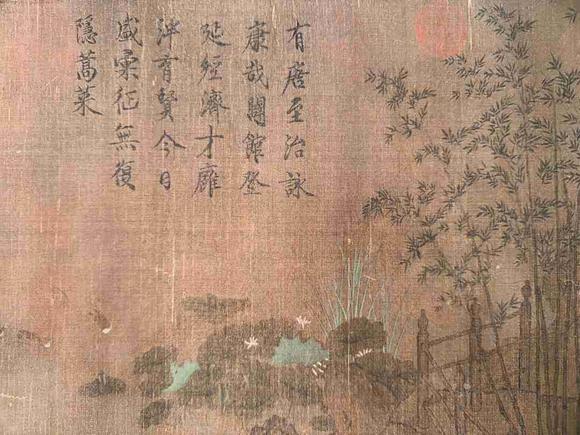 有唐至治詠
康哉闢館登
延經濟才廱
泮育賢今日
盛彙征無復
隱蒿萊